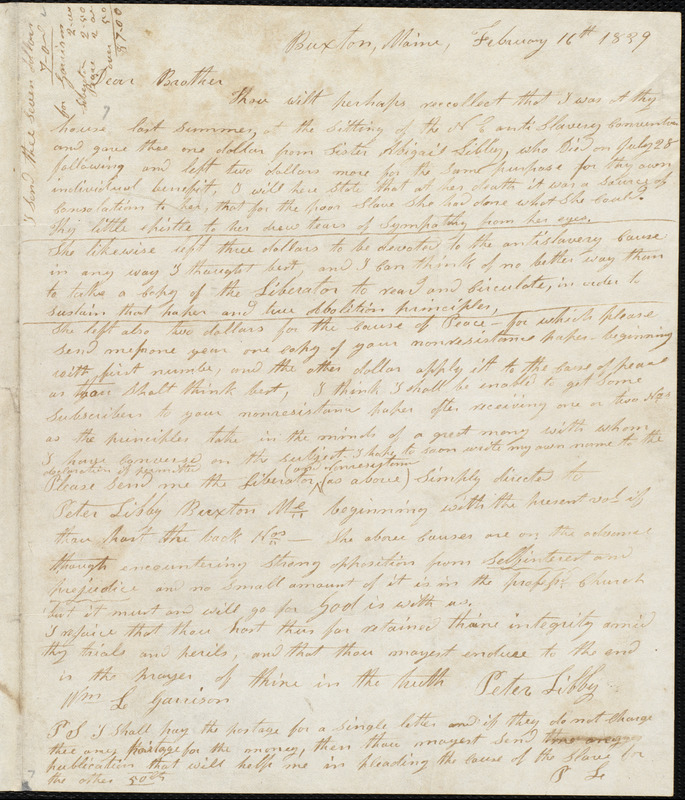 Buxton, Maine, February 16th 1839
Dear Brother
Thou wilt perhaps recollect that I was at thy
house last summer, at the sitting of the N E anti Slavery Convention
and gave thee one dollar from Sister Abigail Libby, who Died on July 28
following and left two dollars more for the same purpose for thy own
individual benefit. I will here state that at her death it was a source of
Consolation to her, that for the poor Slave She had done what She Could.
Thy little epistle to her drew tears of Sympathy from her eyes.
She likewise left three dollars to be devoted to the antislavery Cause
in any way I thought best, and I Can think of no better way than
to take a Copy of the Liberator to read and Circulate, in order to
sustain that paper and true abolition principles,
She left also two dollars for the Cause of Peace - for which please
Send me one year one Copy of your nonresistance paper - beginning
with first number, and the other dollar apply it to the Cause of peace
as thou Shalt think best, I think I shall be enabled to get Some
Subscribers to your nonresistance paper after receiving one or two Nos
as the principles take in the minds of a great many with whom
I have Converse on the subject. I hope to soon write my own name to the
declaration if permitted
Please Send me the Liberator (and nonresistance as above) Simply directed to
Peter Libby Buxton Me beginning with the present vol if
thou hast the back Nos - The above Causes are on the advance
though encountering Strong opposition from Selfinterest and
prejudice and no small amount of it is in the profess. Church
but it must and will go for God is with us.
I rejoice that thou hast thus far retained thine integrity amid
thy trials and perils, and that thou mayest endure to the end
is the prayer of thine in the truth Peter Libby
Wm L Garrison
P S I shall pay the postage for a single letter and if they do not Charge
thee any postage for the money, then thou mayest Send
publication that will help me in pleading the Cause of the Slave for
the other 50cts P L
I Send thee seven dollars
7-00
for Garrison 2-00
50
$7.00